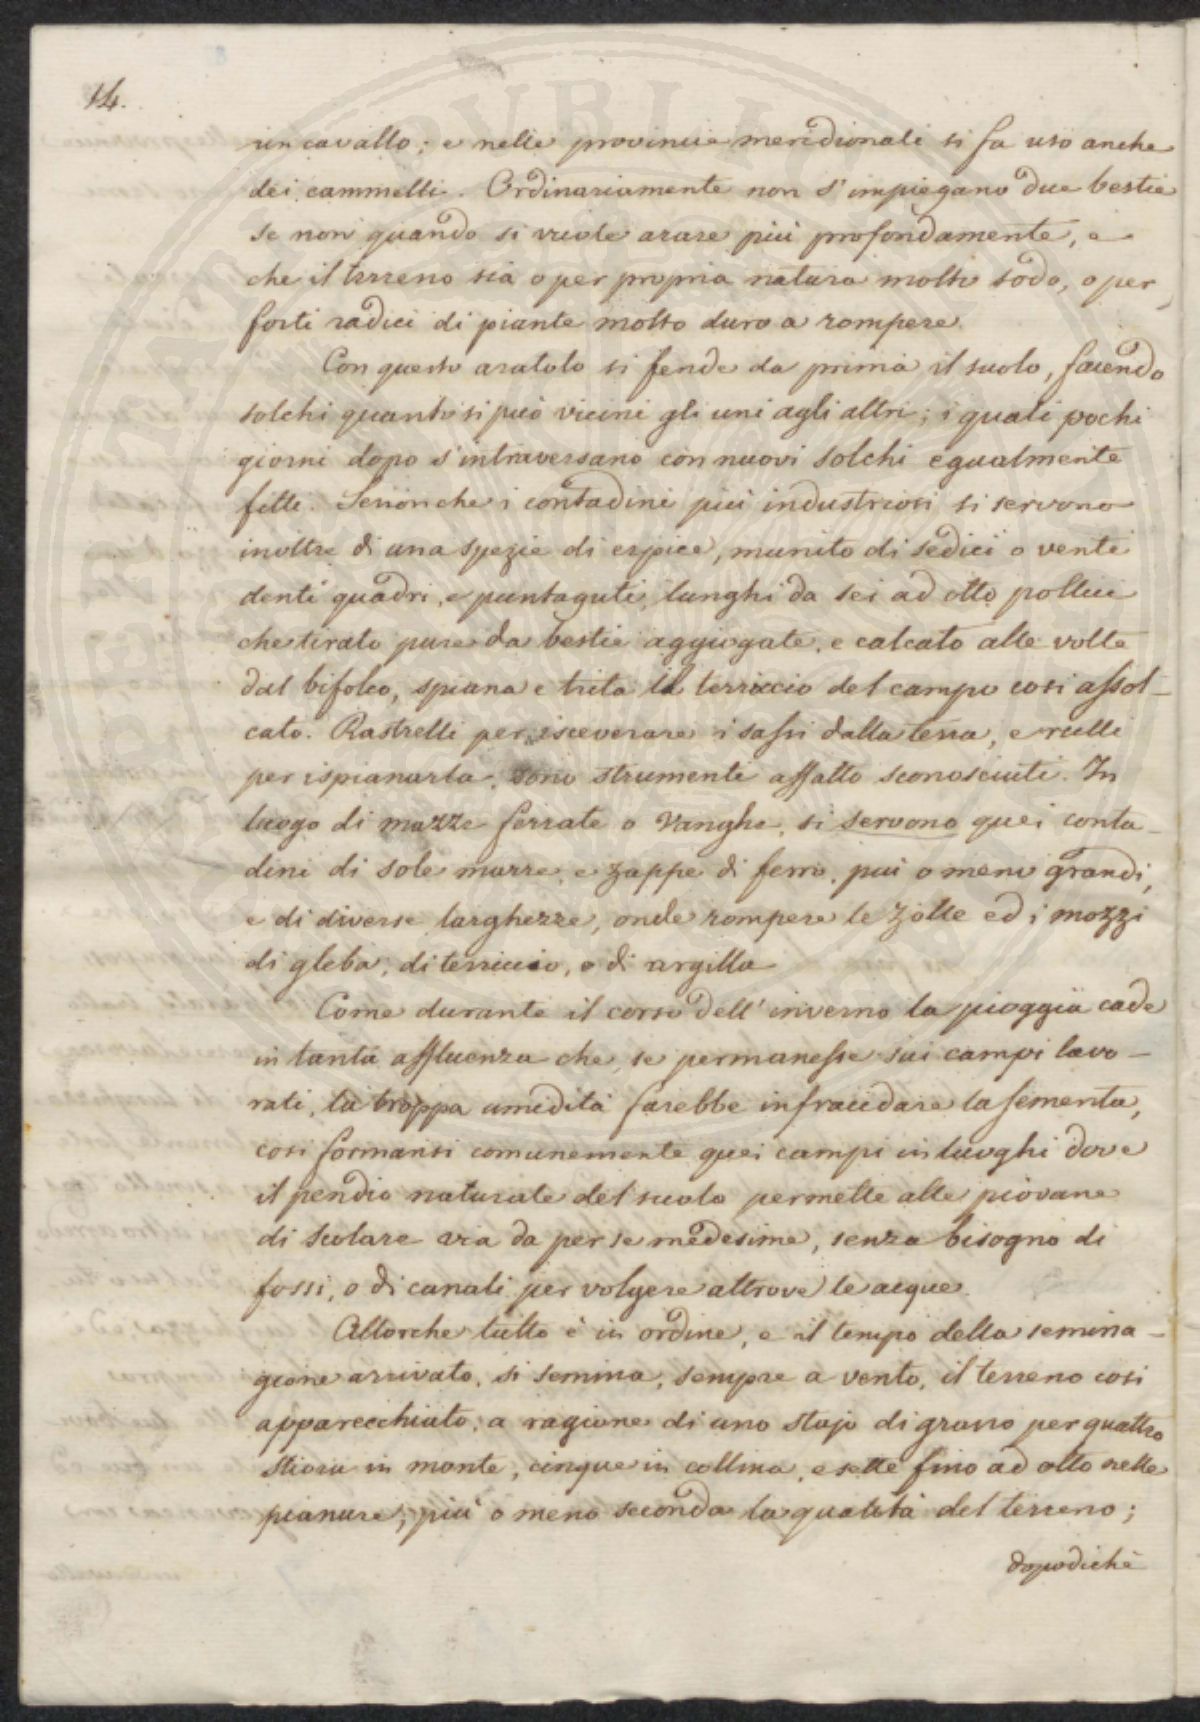 14.
un cavallo; e nelle provincie meridionali si fa uso anche
dei cammelli. Ordinariamente non s'impiegano due bestie
se non quando si vuole arare più profondamente, e
che il terreno sia o per propria natura molto sodo, o per
forti radici di piante molto duro a rompere.
Con questo aratolo si fende da prima il suolo, facendo
solchi quanto si può vicini gli uni agli altri; i quali pochi
giorni dopo s'intraversano con nuovi solchi egualmente
fitti. Senonche i contadini più industriosi si servono
inoltre di una spezie di erpice, munito di sedici o venti
denti quadri, e puntaguti, lunghi da sei ad otto pollici
che tirato pure da bestie aggiogate, e calcato alle volte
dal bifolco, spiana e trita il terriccio del campo così assol-
cato. Rastrelli per isceverare i sassi dalla terra, e rulli
per ispianarla, sono strumenti affatto sconosciuti. In
luogo di mazze ferrate o vanghe, si servono quei conta-
dini di sole marre, e zappe di ferro, più o meno grandi,
e di diverse larghezze, onde rompere le zolle ed i mozzi
di gleba, di terriccio, o di argilla
Come durante il corso dell'inverno la pioggia cade
in tanta affluenza che, se permanesse sui campi lavo-
rati, la troppa umidità farebbe infracidare la sementa,
così formansi comunemente quei campi in luoghi dove
il pendio naturale del suolo permette alle piovane
di scolare via da per se medesime, senza bisogno di
fossi, o di canali per volgere altrove le acque.
Allorche tutto è in ordine, e il tempo della semina-
gione arrivato, si semina, sempre a vento, il terreno così
apparecchiato, a ragione di uno stajo di grano per quattro
stiora in monte, cinque in collina, e sette fino ad otto nelle
pianure, più o meno seconda la qualità del terreno;
dopodichè
PVBLIC